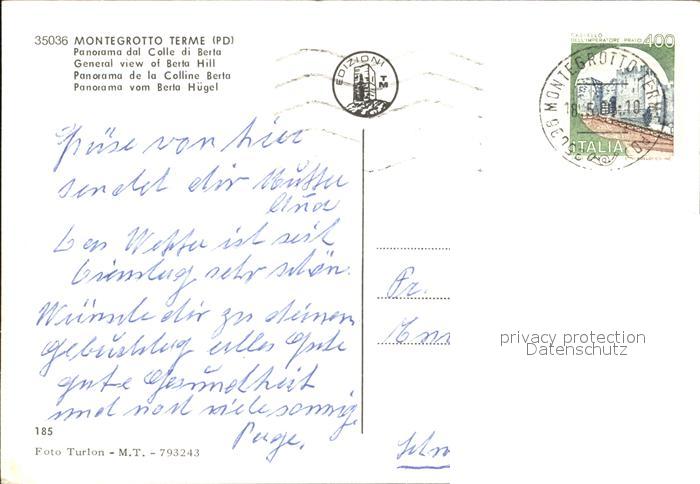 35036 MONTEGROTTO TERME (PD)
Panorama dal Colle di Berta
General view of Berta Hill
Panorama de la Colline Berta
Panorama vom Berta Hügel
EDIZIONI
TM
CASTELLO
DELL'IMPERATORE PRATO 400
ITALIA
35036 MONTEGROTTO TERME
18.5
Grüse von hier
sendet dir Mutter
und
Das Wetter ist seit
Dienstag sehr schön.
Wünsche dir zu deinem
Geburtstag alles Gute
gute Gesundheit
und noch viele sonnig.
Tage.
Fr.
privacy protection
Datenschutz
185
Foto Turlon - M.T. - 793243